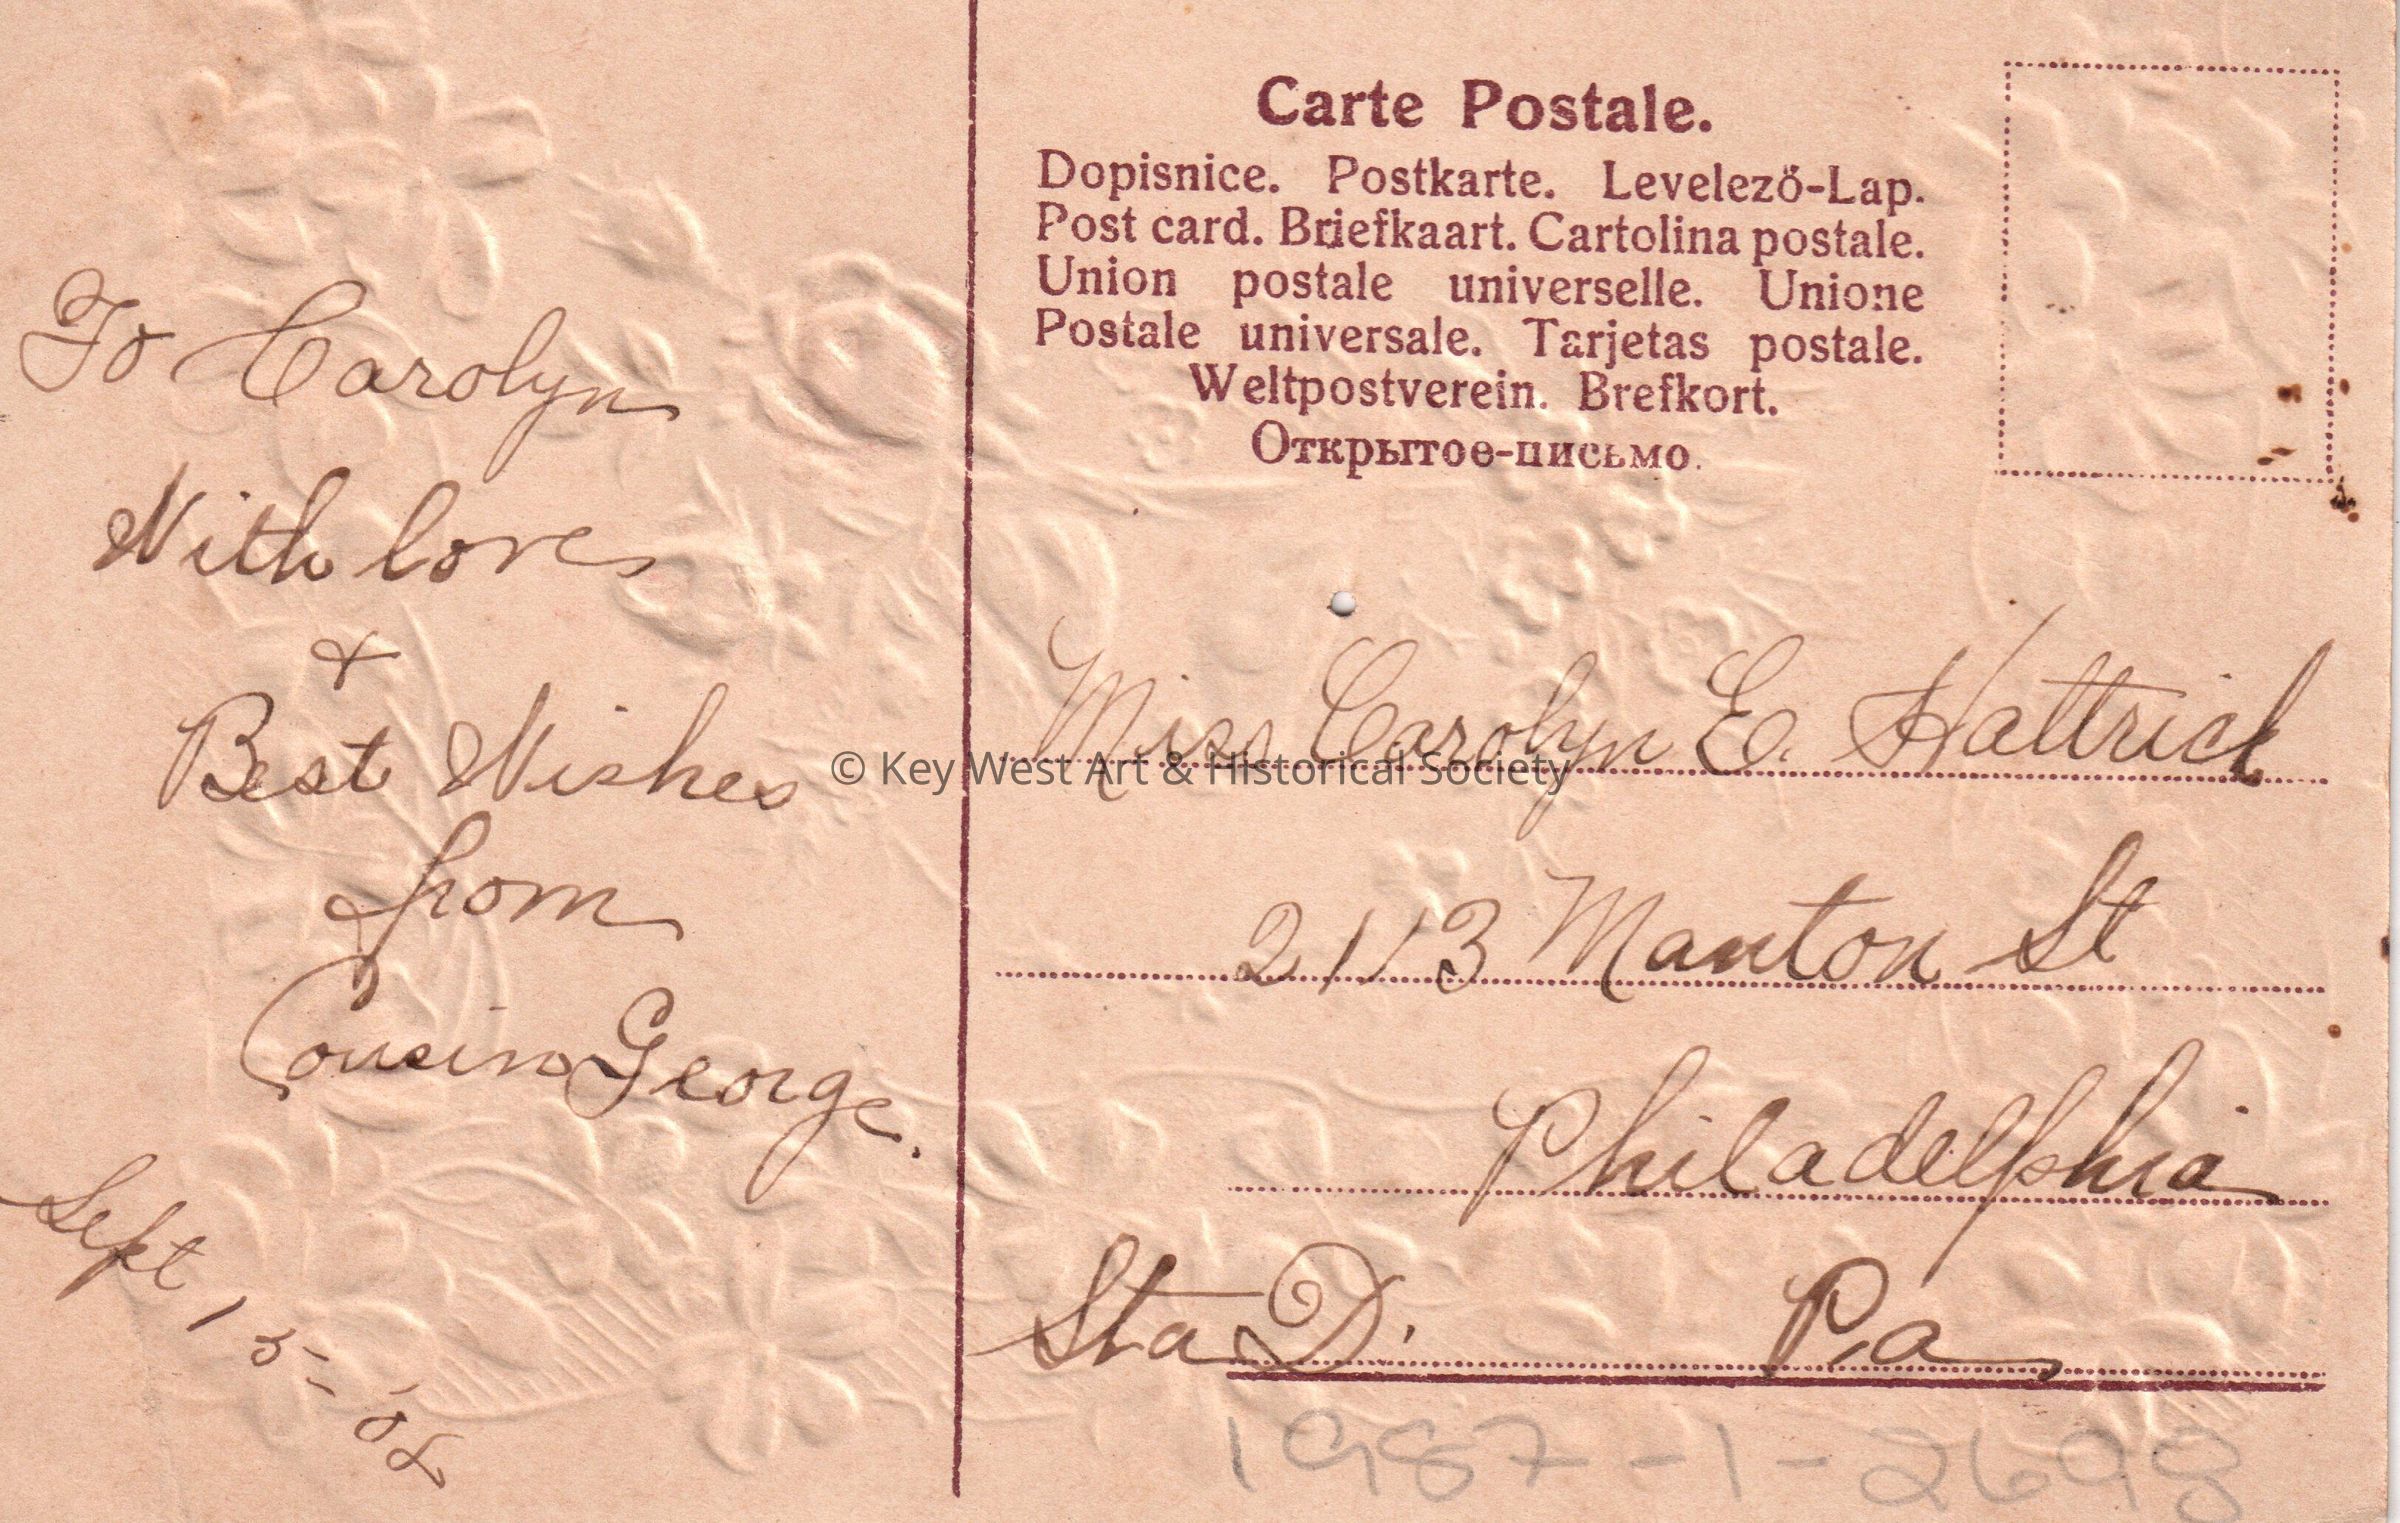 To Carolyn
With love
+
Best Wishes
from
Cousin George.
Sept 15-
Carte Postale.
Dopisnice. Postkarte. Levelező-Lap.
Post card. Briefkaart. Cartolina postale.
Union postale universelle. Unione
Postale universale. Tarjetas postale.
Weltpostverein. Brefkort.
Открытое-письмо.
Miss Carolyn E. Hattrick
© Key West Art & Historical Society
2113 Manton St
Philadelphia
Sta D. Pa
1987-1-2698